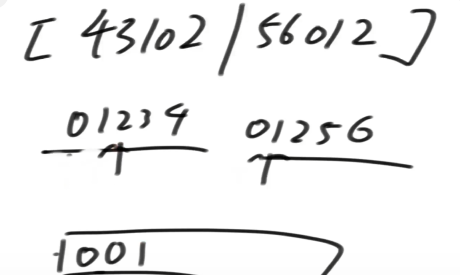 [ 43102 / 56012 ]
01234 01256
1001